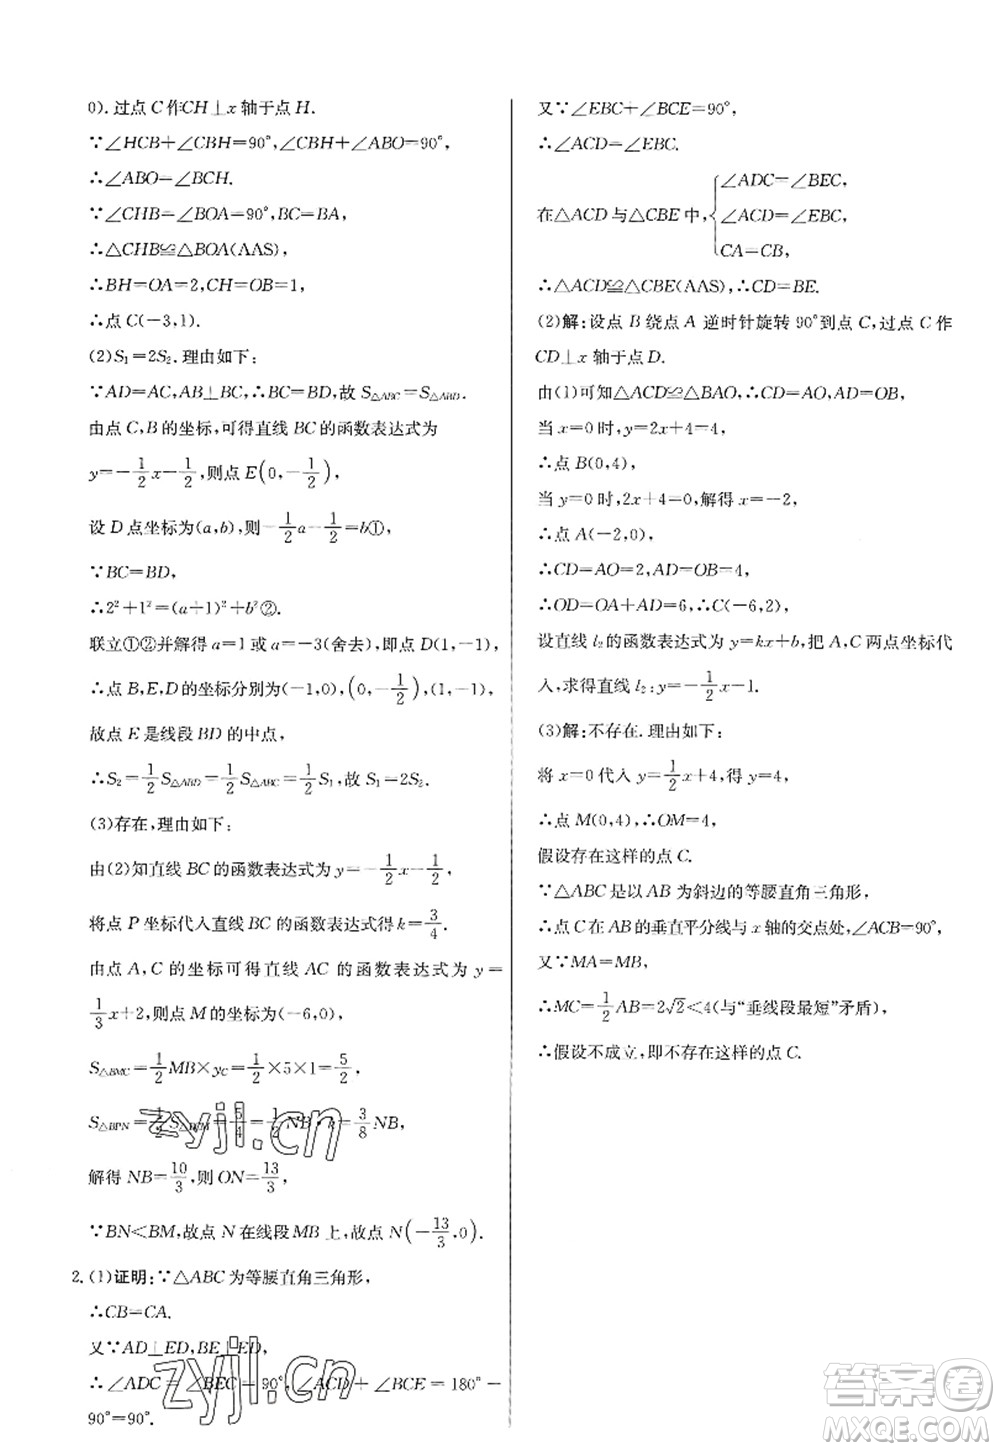 0).过点C作CH⊥x轴于点H.
∵∠HCB+∠CBH=90°,∠CBH+∠ABO=90°,
∴∠ABO=∠BCH.
∵∠CHB=∠BOA=90°,BC=BA,
∴△CHB≌△BOA(AAS),
∴BH=OA=2,CH=OB=1,
∴点C(-3,1).
(2)S₁=2S₂.理由如下:
∵AD=AC,AB⊥BC,∴BC=BD,故S△ABC=S△ABD.
由点C,B的坐标,可得直线BC的函数表达式为
y=-1/2x-1/2,则点E(0,-1/2),
设D点坐标为(a,b),则-1/2a-1/2=b①,
∵BC=BD,
∴2²+1²=(a+1)²+b²②.
联立①②并解得a=1或a=-3(舍去),即点D(1,-1),
∴点B,E,D的坐标分别为(-1,0),(0,-1/2),(1,-1),
故点E是线段BD的中点,
∴S₂=1/2S△ABD=1/2S△ABC=1/2S₁,故S₁=2S₂.
(3)存在,理由如下:
由(2)知直线BC的函数表达式为y=-1/2x-1/2,
将点P坐标代入直线BC的函数表达式得k=3/4.
由点A,C的坐标可得直线AC的函数表达式为y=
1/3x+2,则点M的坐标为(-6,0),
S△BMC=1/2MB×yC=1/2×5×1=5/2,
S△BPN=1/2S△BCM=5/4=1/2NB·k=3/8NB,
解得NB=10/3,则ON=13/3,
∵BN<BM,故点N在线段MB上,故点N(-13/3,0).
2.(1)证明:∵△ABC为等腰直角三角形,
∴CB=CA.
又∵AD⊥ED,BE⊥ED,
∴∠ADC=∠BEC=90°,∠ACD+∠BCE=180°-
90°=90°.
又∵∠EBC+∠BCE=90°,
∴∠ACD=∠EBC.
在△ACD与△CBE中,{∠ADC=∠BEC,
∠ACD=∠EBC,
CA=CB,
∴△ACD≌△CBE(AAS),∴CD=BE.
(2)解:设点B绕点A逆时针旋转90°到点C,过点C作
CD⊥x轴于点D.
由(1)可知△ACD≌△BAO,∴CD=AO,AD=OB,
当x=0时,y=2x+4=4,
∴点B(0,4),
当y=0时,2x+4=0,解得x=-2,
∴点A(-2,0),
∴CD=AO=2,AD=OB=4,
∴OD=OA+AD=6,∴C(-6,2),
设直线l₂的函数表达式为y=kx+b,把A,C两点坐标代
入,求得直线l₂:y=-1/2x-1.
(3)解:不存在.理由如下:
将x=0代入y=1/2x+4,得y=4,
∴点M(0,4),∴OM=4,
假设存在这样的点C.
∵△ABC是以AB为斜边的等腰直角三角形,
∴点C在AB的垂直平分线与x轴的交点处,∠ACB=90°,
又∵MA=MB,
∴MC=1/2AB=2√2<4(与"垂线段最短"矛盾),
∴假设不成立,即不存在这样的点C.
zyjl.cn
zyjl.cn
答案圈
MXQE.COM